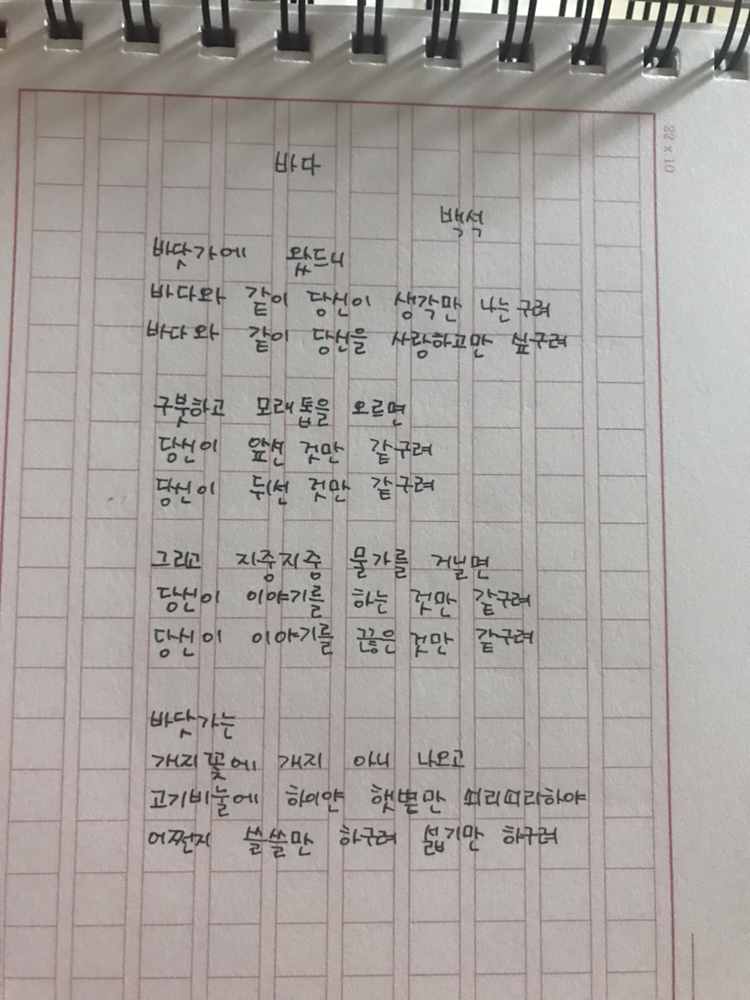 22 x 10
바다
백석
바닷가에 왔드니
바다와 같이 당신이 생각만 나는구려
바다와 같이 당신을 사랑하고만 싶구려
구붓하고 모래톱을 오르면
당신이 앞선 것만 같구려
당신이 뒤선 것만 같구려
그리고 지중지중 물가를 거닐면
당신이 이야기를 하는 것만 같구려
당신이 이야기를 끊은 것만 같구려
바닷가는
개지꽃에 개지 아니 나오고
고기비눌에 하이얀 햇볕만 쇠리쇠리하야
어쩐지 쓸쓸만 하구려 섧기만 하구려